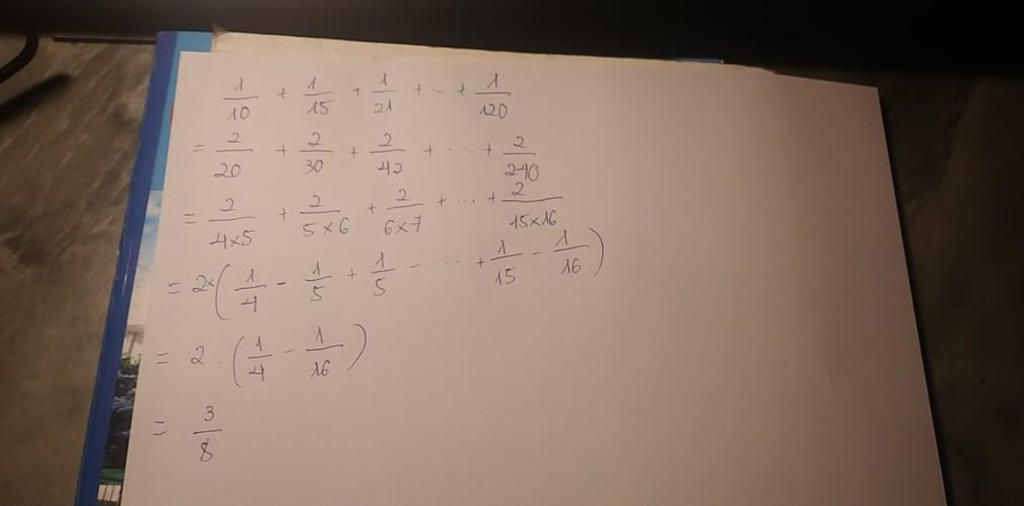 1/10 + 1/15 + 1/21 + ... + 1/120
= 2/20 + 2/30 + 2/42 + ... + 2/240
= 2/4×5 + 2/5×6 + 2/6×7 + ... + 2/15×16
= 2×(1/4 - 1/5 + 1/5 - ... + 1/15 - 1/16)
= 2 . (1/4 - 1/16)
= 3/8